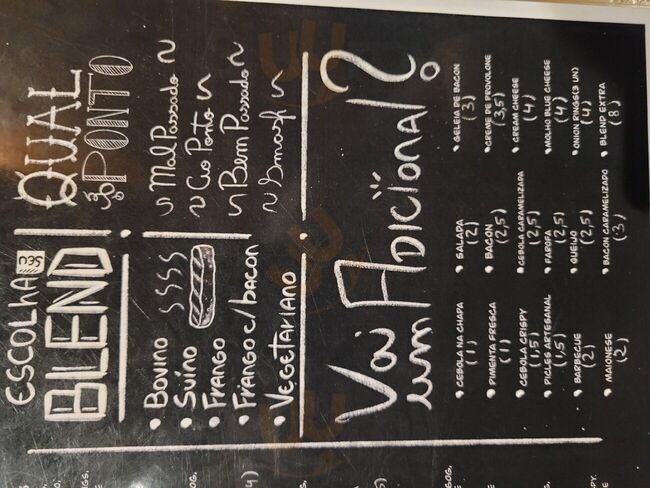 ESCOLHA SEU
BLEND
• BOVINO
• SUÍNO
• FRANGO
• FRANGO c/ bacon
• VEGETARIANO
QUAL
O PONTO
~ Mal Passado ~
~ Ao Ponto ~
~ Bem Passado ~
~ Smash ~
Vai
um ADICIONAL?
• CEBOLA NA CHAPA
(1)
• PIMENTA FRESCA
(1)
• CEBOLA CRISPY
(1,5)
• PICLES ARTESANAL
(1,5)
• BARBECUE
(2)
• MAIONESE
(2)
• SALADA
(2)
• BACON
(2,5)
• CEBOLA CARAMELIZADA
(2,5)
• FAROFA
(2,5)
• QUEIJO
(2,5)
• BACON CARAMELIZADO
(3)
• GELEIA DE BACON
(3)
• CREME DE PROVOLONE
(3,5)
• CREAM CHEESE
(4)
• MOLHO BLUE CHEESE
(4)
• ONION RINGS(3 UN)
(4)
• BLEND EXTRA
(8)